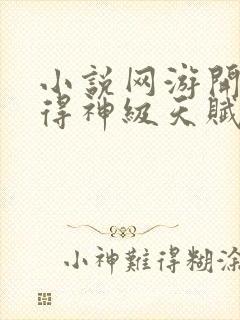 小説网游開
得神級天賦
小神難得糊涂